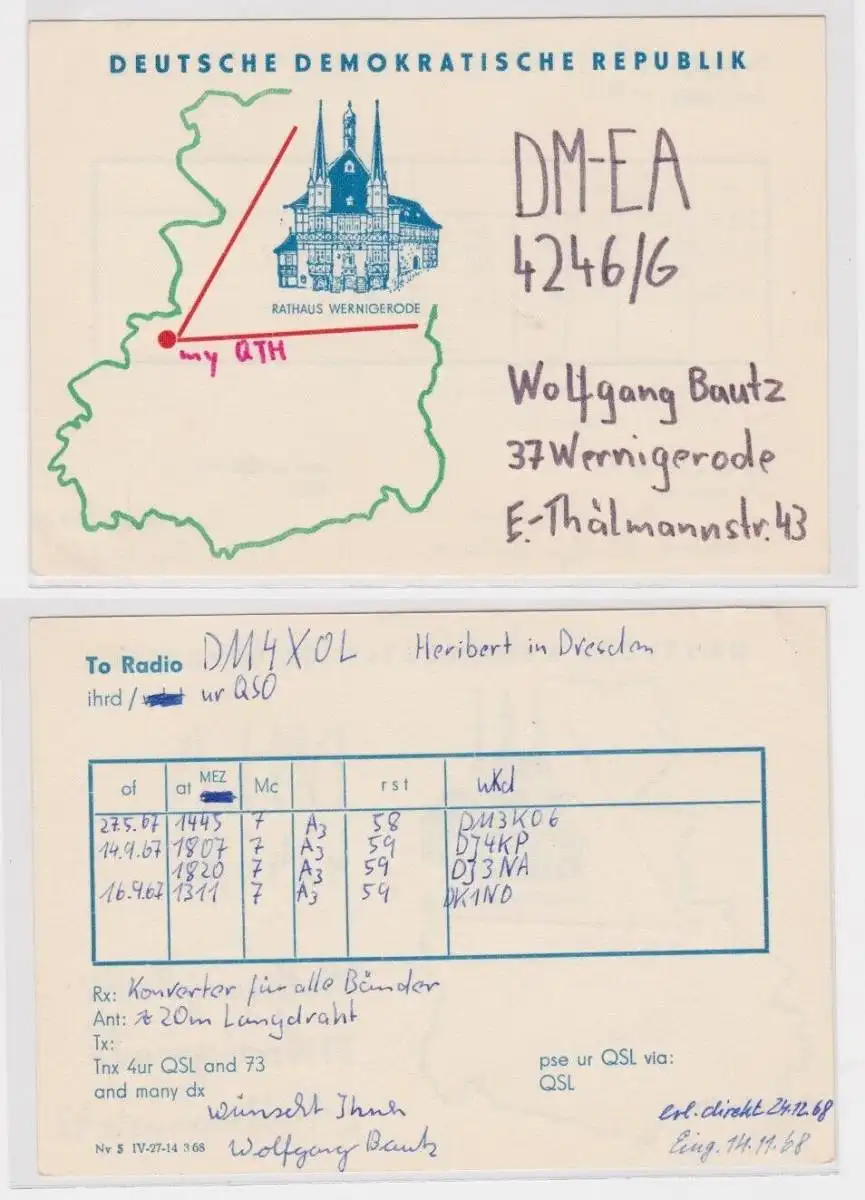 DEUTSCHE DEMOKRATISCHE REPUBLIK
DM-EA
4246/G
RATHAUS WERNIGERODE
my QTH
Wolfgang Bautz
37 Wernigerode
E.-Thälmannstr. 43
To Radio DM4XOL Heribert in Dresden
ihrd / ur QSO
of at MEZ Mc rst wkd
27.5.67 1445 7 A3 58 DM3KOG
14.9.67 1807 7 A3 59 DJ4KP
1820 7 A3 59 DJ3NA
16.9.67 1311 7 A3 59 DK1NO
Rx: Konverter für alle Bänder
Ant: 20m Langdraht
Tx:
Tnx 4ur QSL and 73
and many dx
wünscht Ihnen
Wolfgang Bautz
pse ur QSL via:
QSL
erl. direkt 24.12.68
Eing. 14.11.68
Nv 5 IV-27-14 3 68